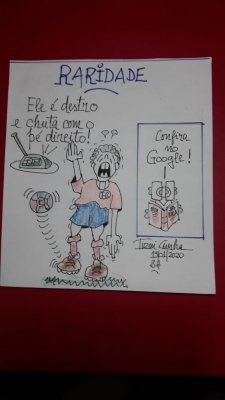 RARIDADE
Ele é destro
e chuta com o
pé direito!
Confira
no
Google!
Cunha